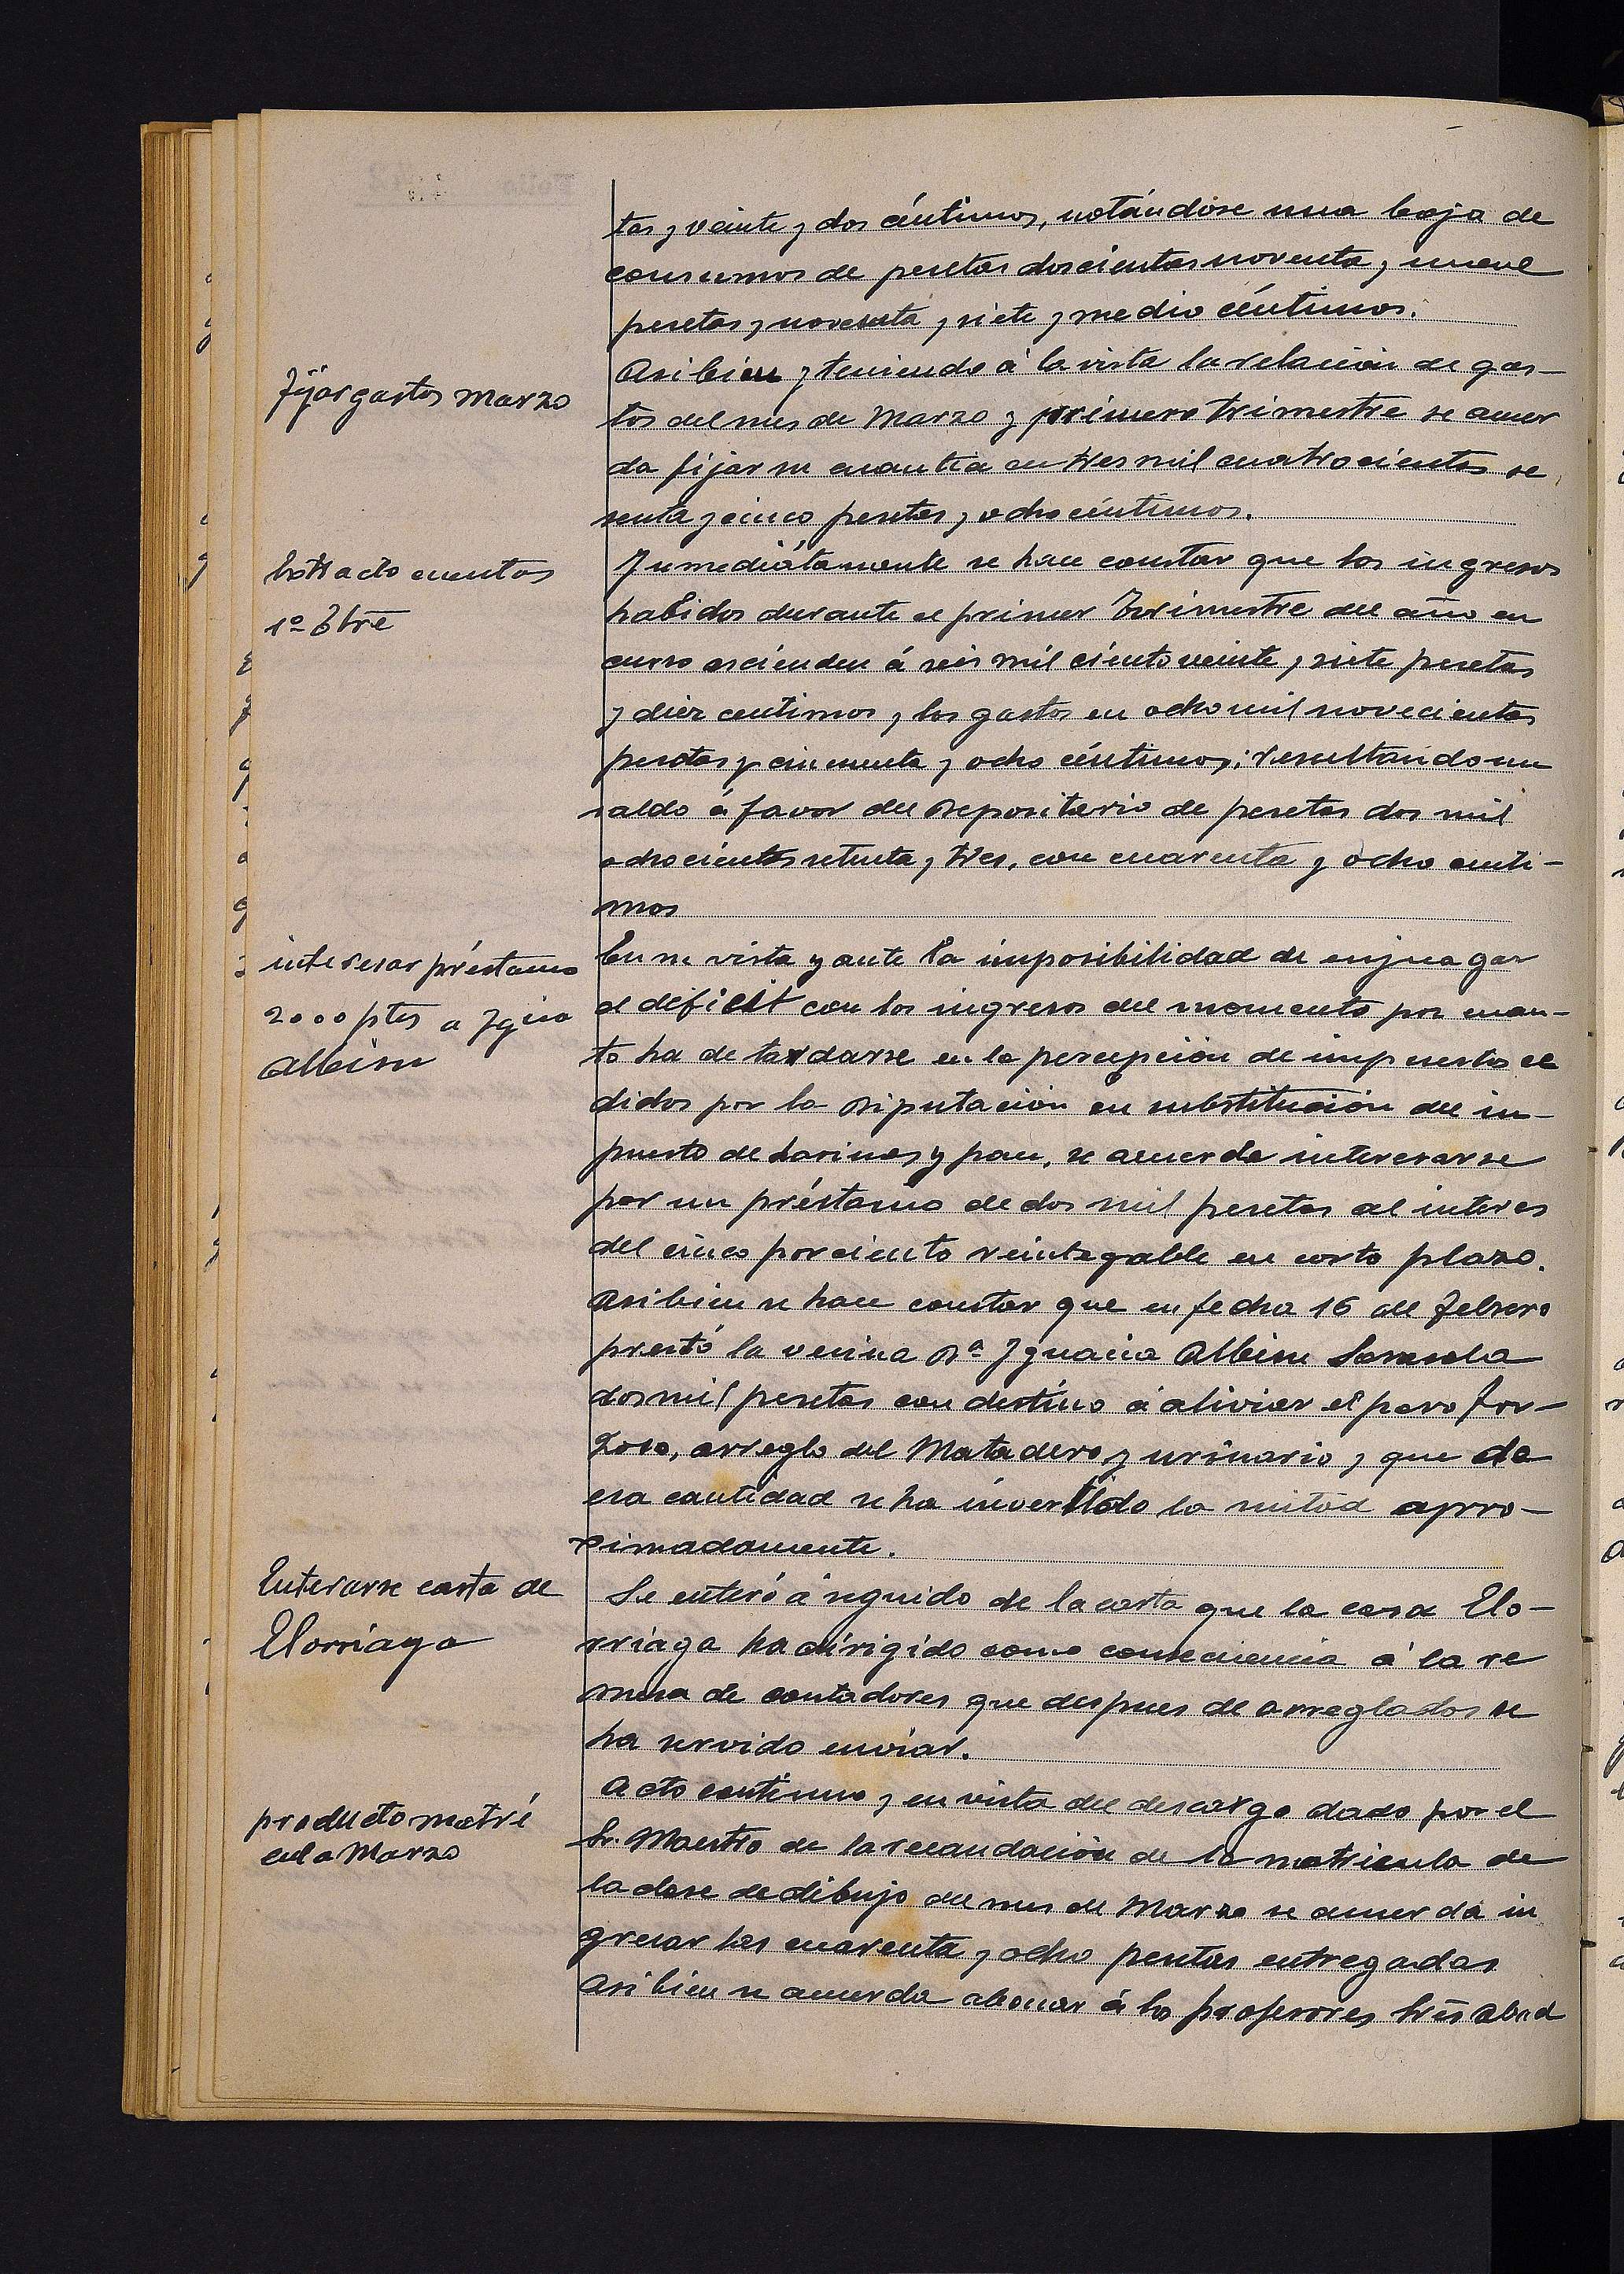 tas y veinte y dos céntimos, notándose una baja de
consumos de pesetas doscientas noventa y nueve
pesetas y noventa y siete y medio céntimos.
Fijar gastos Marzo
Asi bien y teniendo á la vista la relación de gas-
tos del mes de Marzo y primero trimestre se acuer
da fijar su cuantia en tres mil cuatrocientas se
senta y cinco pesetas y ocho céntimos.
Extracto cuentas
1º Tbre
Inmediátamente se hace constar que los ingresos
habidos durante el primer Trimestre del año en
curso ascienden á seis mil ciento veinte y siete pesetas
y diez centimos y los gastos en ocho mil novecientas
pesetas y cincuenta y ocho céntimos; resultando un
saldo á favor del Depositario de pesetas dos mil
ochocientas setenta y tres, con cuarenta y ocho centi-
mos
interesar préstamo
2000 ptas a Ignia
Albisu
En su vista y ante la imposibilidad de enjuagar
el déficit con los ingresos del momento por cuan-
to ha de tardarse en la percepción de impuestos ce
didos por la Diputación en substitución del im-
puesto de harinas y pan, se acuerda interesarse
por un préstamo de dos mil pesetas al interes
del cinco por ciento reintegable en corto plazo.
Asi bien se hace constar que en fecha 16 de Febrero
prestó la vecina Dª Ignacia Albisu Sarasola
dos mil pesetas con destino á aliviar el paro for-
zoso, arreglo del Matadero y urinario y que de
esa cantidad se ha invertido la mitad apro-
ximadamente.
Enterarse carta de
Elorriaga
Se enteró á seguido de la carta que la casa Elo-
rriaga ha dirigido como consecuencia á la re
mesa de contadores que despues de arreglados se
ha servido enviar.
producto matri
cula Marzo
Acto continuo y en vista del descargo dado por el
Sr. Maestro de la recaudación de la matricula de
la clase de dibujo del mes de Marzo se acuerda in
gresar las cuarenta y ocho pesetas entregadas
Asi bien se acuerda abonar á los profesores Sres Abad